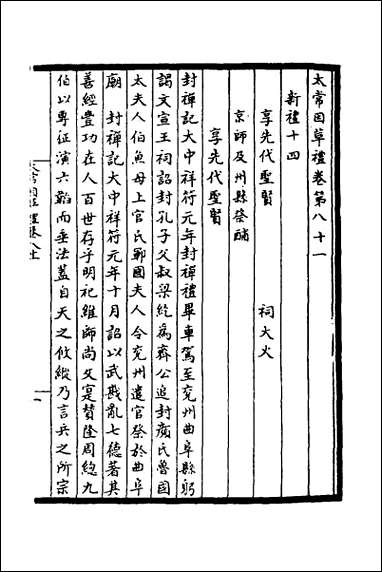 太常因革禮卷第八十一
新禮十四
享先代聖賢 祠大火
京師及州縣禜酺
享先代聖賢
封禪記大中祥符元年封禪禮畢車駕至兗州曲阜縣躬
謁文宣王祠詔封孔子父叔梁紇為齊公追封顏氏魯國
太夫人伯魚母上官氏鄆國夫人令兗州遣官祭於曲阜
廟 封禪記大中祥符元年十月詔以武戡亂七德著其
善經豊功在人百世存乎明祀維師尚父寔賛隆周緫九
伯以專征演六韜而垂法蓋自天之攸縱乃言兵之所宗